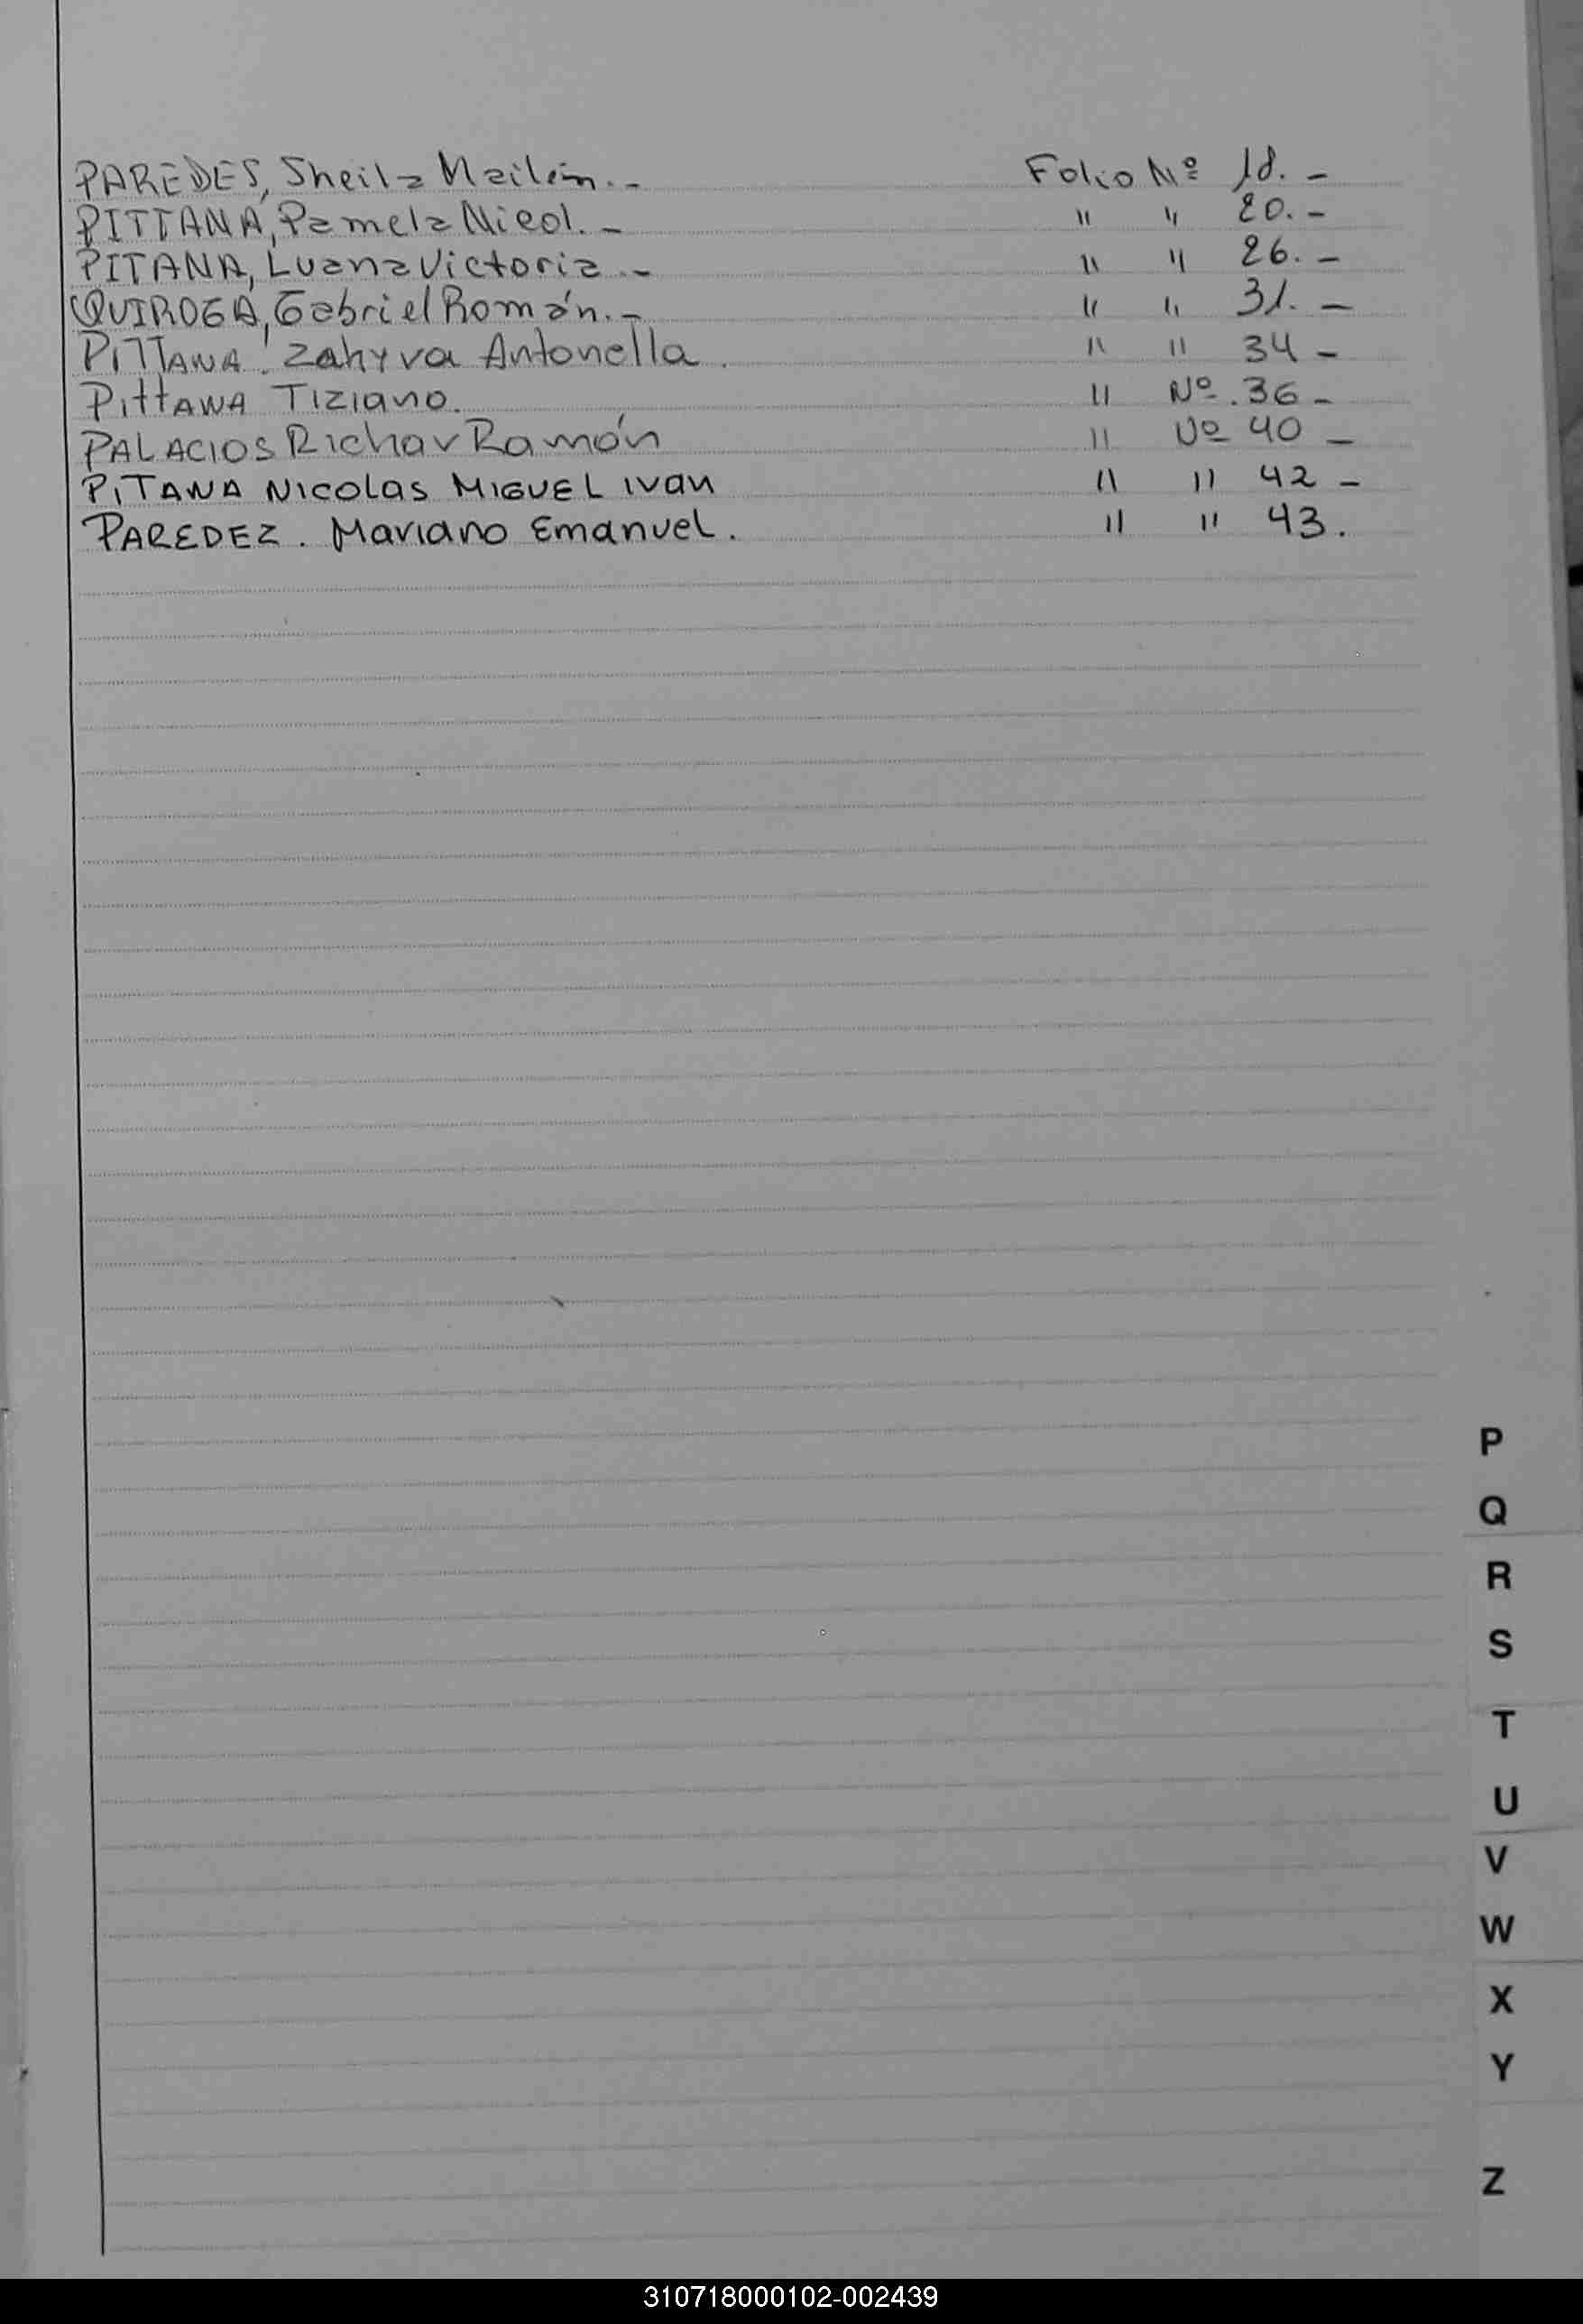 PAREDES, Sheila Mailén.- Folio Nº 18.-
PITTANA, Pamela Nicol.- " " 20.-
PITANA, Luana Victoria.- " " 26.-
QUIROGA, Gabriel Román.- " " 31.-
PiTTANA. Zahyra Antonella. " " 34-
PittANA Tiziano. " Nº.36-
PALACIOS Richar Ramón " Nº 40-
PiTANA Nicolas MIGUEL Ivan " " 42-
PAREDEZ. Mariano Emanuel. " " 43.
P
Q
R
S
T
U
V
W
X
Y
Z
310718000102-002439